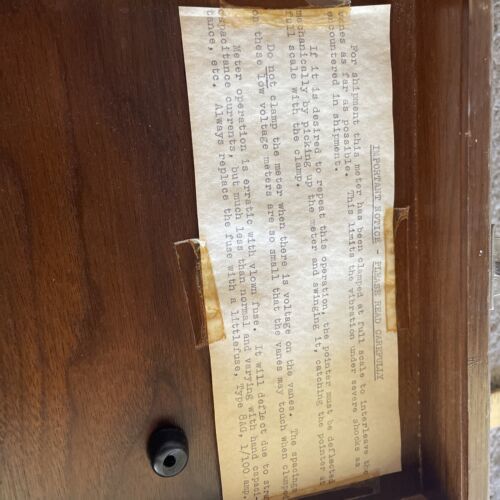 IMPORTANT NOTICE PLEASE READ CAREFULLY
For shipment this meter has been clamped at full scale to interleave the
vanes as far as possible. This limits the vibration under severe shocks as
encountered in shipment.
If it is desired to repeat this operation, the pointer must be deflected
mechanically by picking up the meter and swinging it, catching the pointer at
full scale with the clamp.
Do not clamp the meter when there is voltage on the vanes. The spacings
on these low voltage meters are so small that the vanes may touch when clamped
Meter operation is erratic with vlown fuse. It will deflect due to
capacitance currents, but much less than normal and varying with hand
tance, etc. Always replace the fuse with a littlefuse, Type 8AG, 1/100 amp.